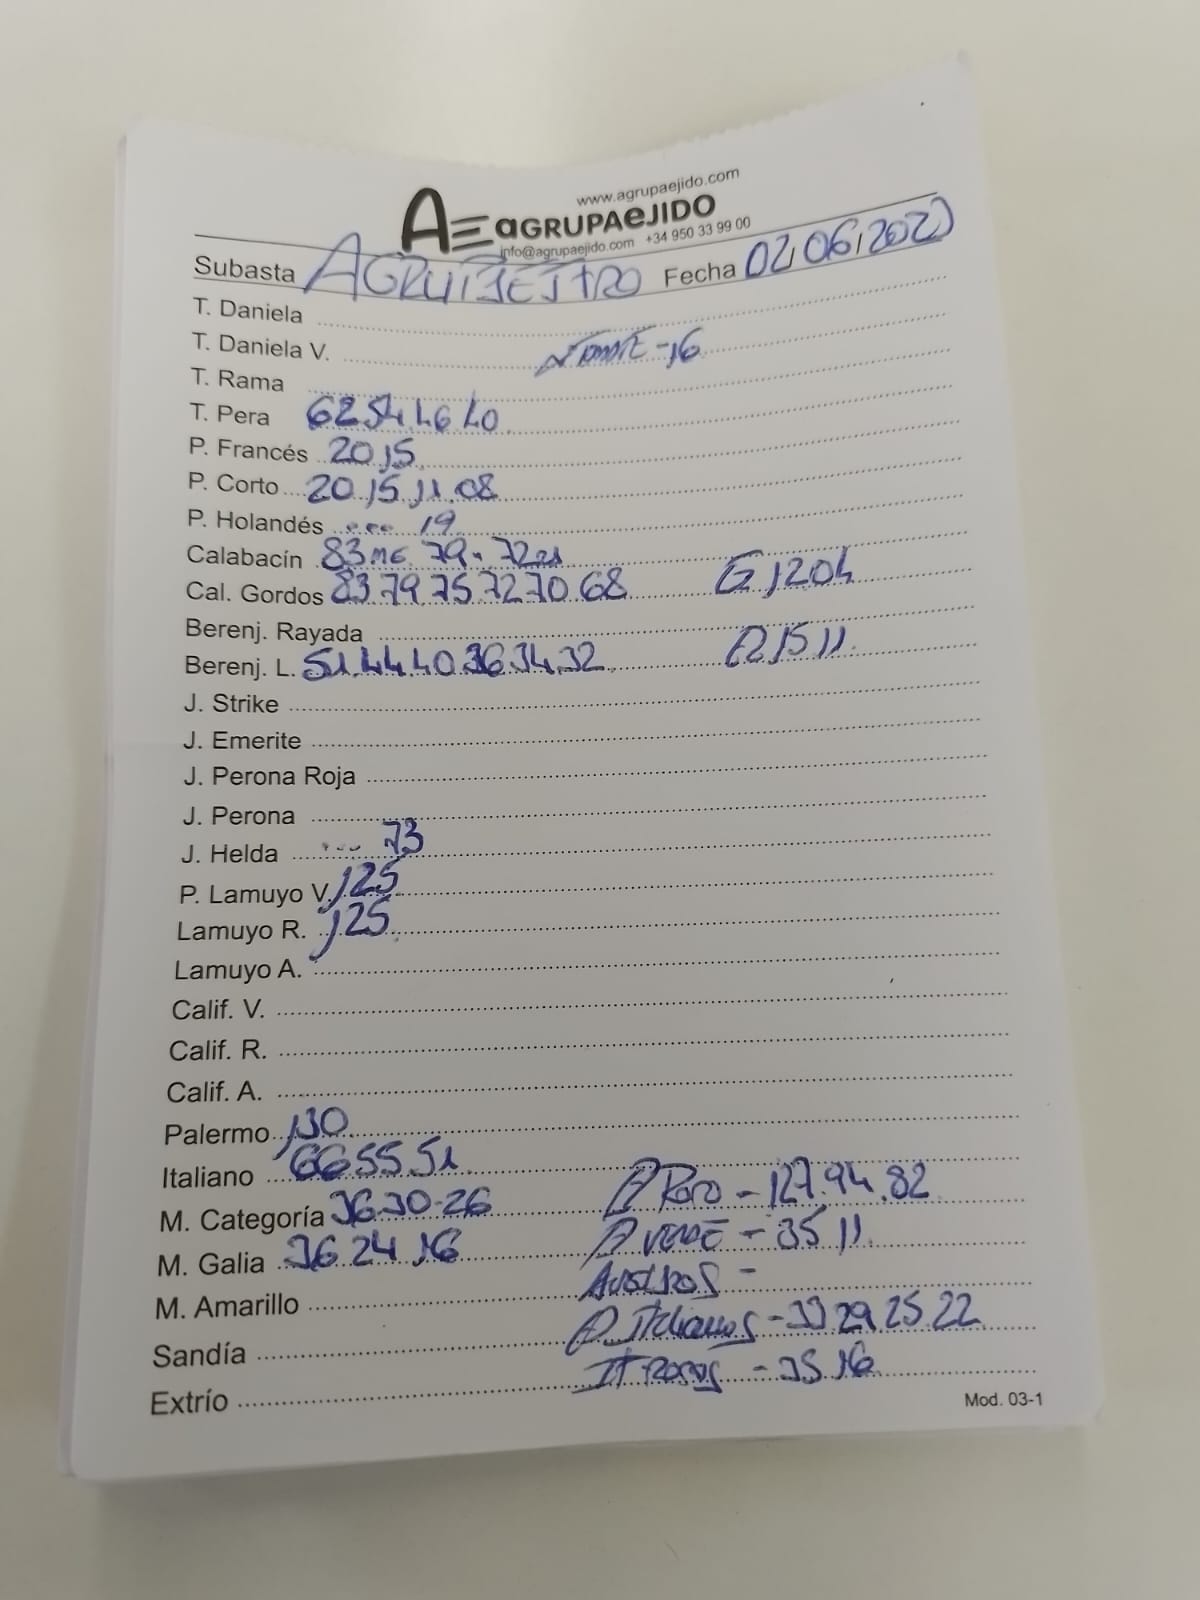 www.agrupaejido.com
AGRUPAEJIDO
info@agrupaejido.com +34 950 33 99 00
Subasta Fecha 02/06/202
T. Daniela
T. Daniela V. -16
T. Rama
T. Pera 62 54 46 40
P. Francés 20 15
P. Corto 20 15 11 08
P. Holandés 19
Calabacín 83 79 72
Cal. Gordos 83 79 75 72 70 68 G 1204
Berenj. Rayada
Berenj. L. 51 44 40 36 34 32 15 11
J. Strike
J. Emerite
J. Perona Roja
J. Perona
J. Helda 73
P. Lamuyo V. 125
Lamuyo R. 125
Lamuyo A.
Calif. V.
Calif. R.
Calif. A.
Palermo 130
Italiano 66 55 51
M. Categoría 36 30-26 - 127 94 82
M. Galia 36 24 16 VERDE - 35 11
M. Amarillo
Sandía Italianos - 33 29 25 22
Extrío IT ROJOS - 35 16
Mod. 03-1